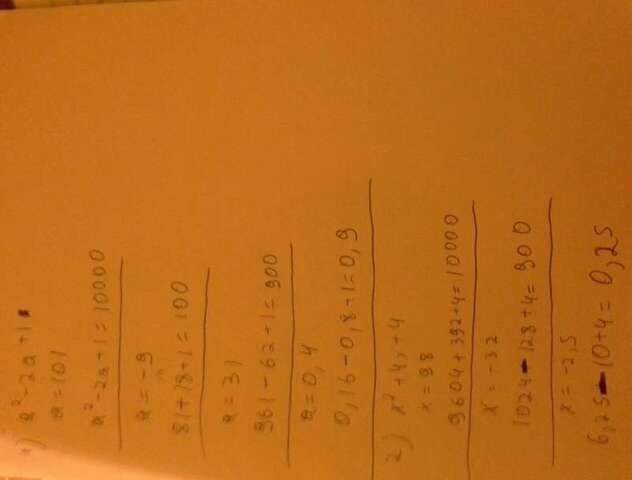 1) a² - 2a + 1
a = 101
a² - 2a + 1 = 10000
a = -9
81 + 18 + 1 = 100
a = 31
961 - 62 + 1 = 900
a = 0,4
0,16 - 0,8 + 1 = 0,9
2) x² + 4x + 4
x = 98
9604 + 392 + 4 = 10000
x = -32
1024 - 128 + 4 = 900
x = -2,5
6,25 - 10 + 4 = 0,25